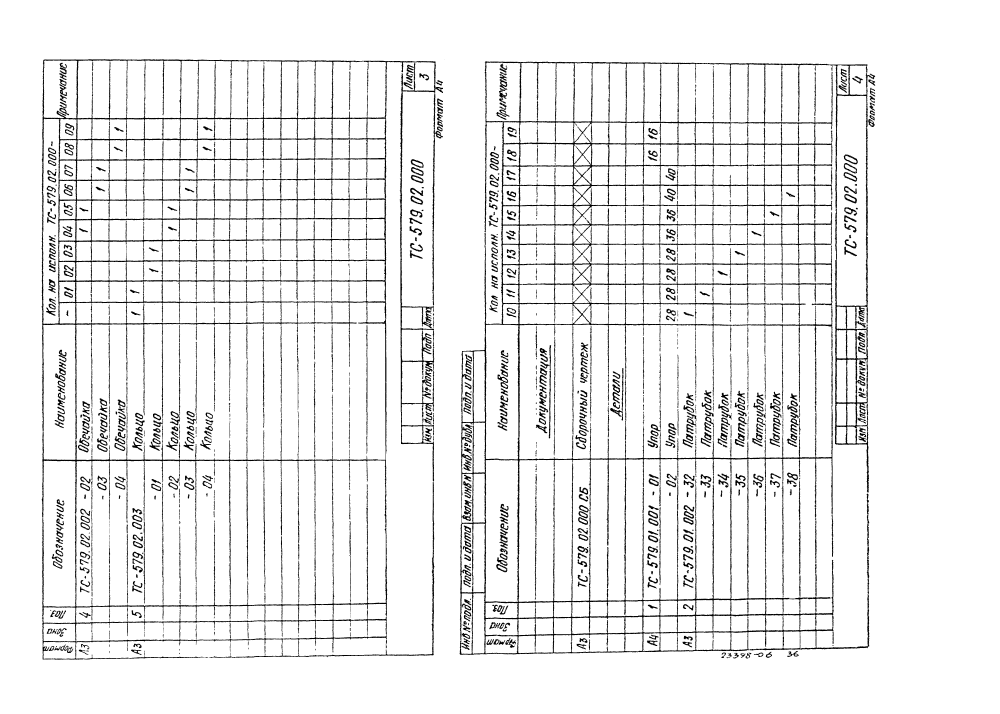 Формат Зона Поз. Обозначение Наименование Кол. на исполн. ТС-579.02.000- Примечание
- 01 02 03 04 05 06 07 08 09
А3 4 ТС-579.02.002 - 02 Обечайка 1 1
- 03 Обечайка 1 1
- 04 Обечайка 1 1
А3 5 ТС-579.02.003 Кольцо 1 1
- 01 Кольцо 1 1
- 02 Кольцо 1 1
- 03 Кольцо 1 1
- 04 Кольцо 1 1
Изм Лист № докум. Подп. Дата
ТС-579.02.000
Лист
3
Формат А4
Инв.№ подл. Подп. и дата Взам.инв.№ Инв.№ дубл. Подп. и дата
Формат Зона Поз. Обозначение Наименование Кол. на исполн. ТС-579.02.000- Примечание
10 11 12 13 14 15 16 17 18 19
Документация
А3 ТС-579.02.000 СБ Сборочный чертеж
Детали
А4 1 ТС-579.01.001 - 01 Упор 16 16
- 02 Упор 28 28 28 28 36 36 40 40
А3 2 ТС-579.01.002 - 32 Патрубок 1
- 33 Патрубок 1
- 34 Патрубок 1
- 35 Патрубок 1
- 36 Патрубок 1
- 37 Патрубок 1
- 38 Патрубок 1
Изм Лист № докум. Подп. Дата
ТС-579.02.000
Лист
4
Формат А4
23398-06 36